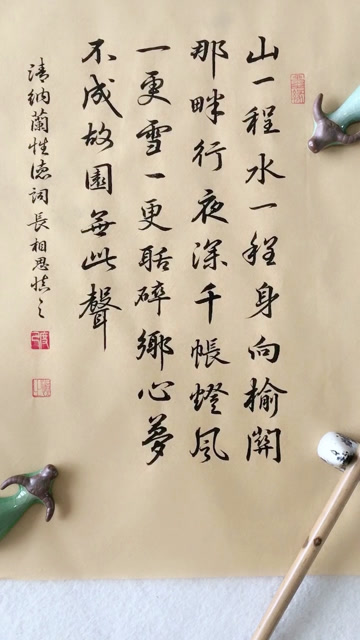 山一程水一程身向榆關
那畔行夜深千帳燈風
一更雪一更聒碎鄉心夢
不成故園無此聲
清納蘭性德詞長相思慎之